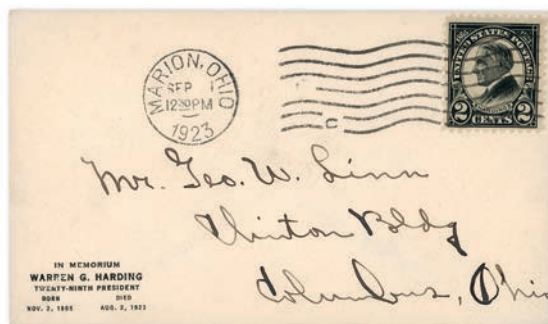 MARION, OHIO
SEP 1
12 30 PM
1923
UNITED STATES POSTAGE
HARDING
2 CENTS 2
Mr. Geo. W. Linn
Clinton Bldg
Columbus, Ohio
IN MEMORIUM
WARREN G. HARDING
TWENTY-NINTH PRESIDENT
BORN DIED
NOV. 2, 1865 AUG. 2, 1923